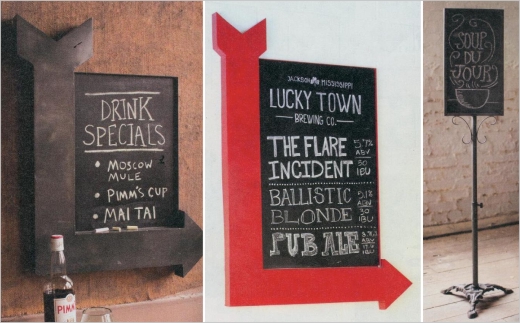 DRINK
SPECIALS
• MOSCOW
MULE
• PIMM'S CUP
• MAI TAI
PIMM
JACKSON MISSISSIPPI
LUCKY TOWN
BREWING CO.
THE FLARE
INCIDENT
5.7%
ABV
50
IBU
BALLISTIC
BLONDE
5.1%
ABV
30
IBU
PUB ALE
ABV
IBU
SOUP
DU
JOUR